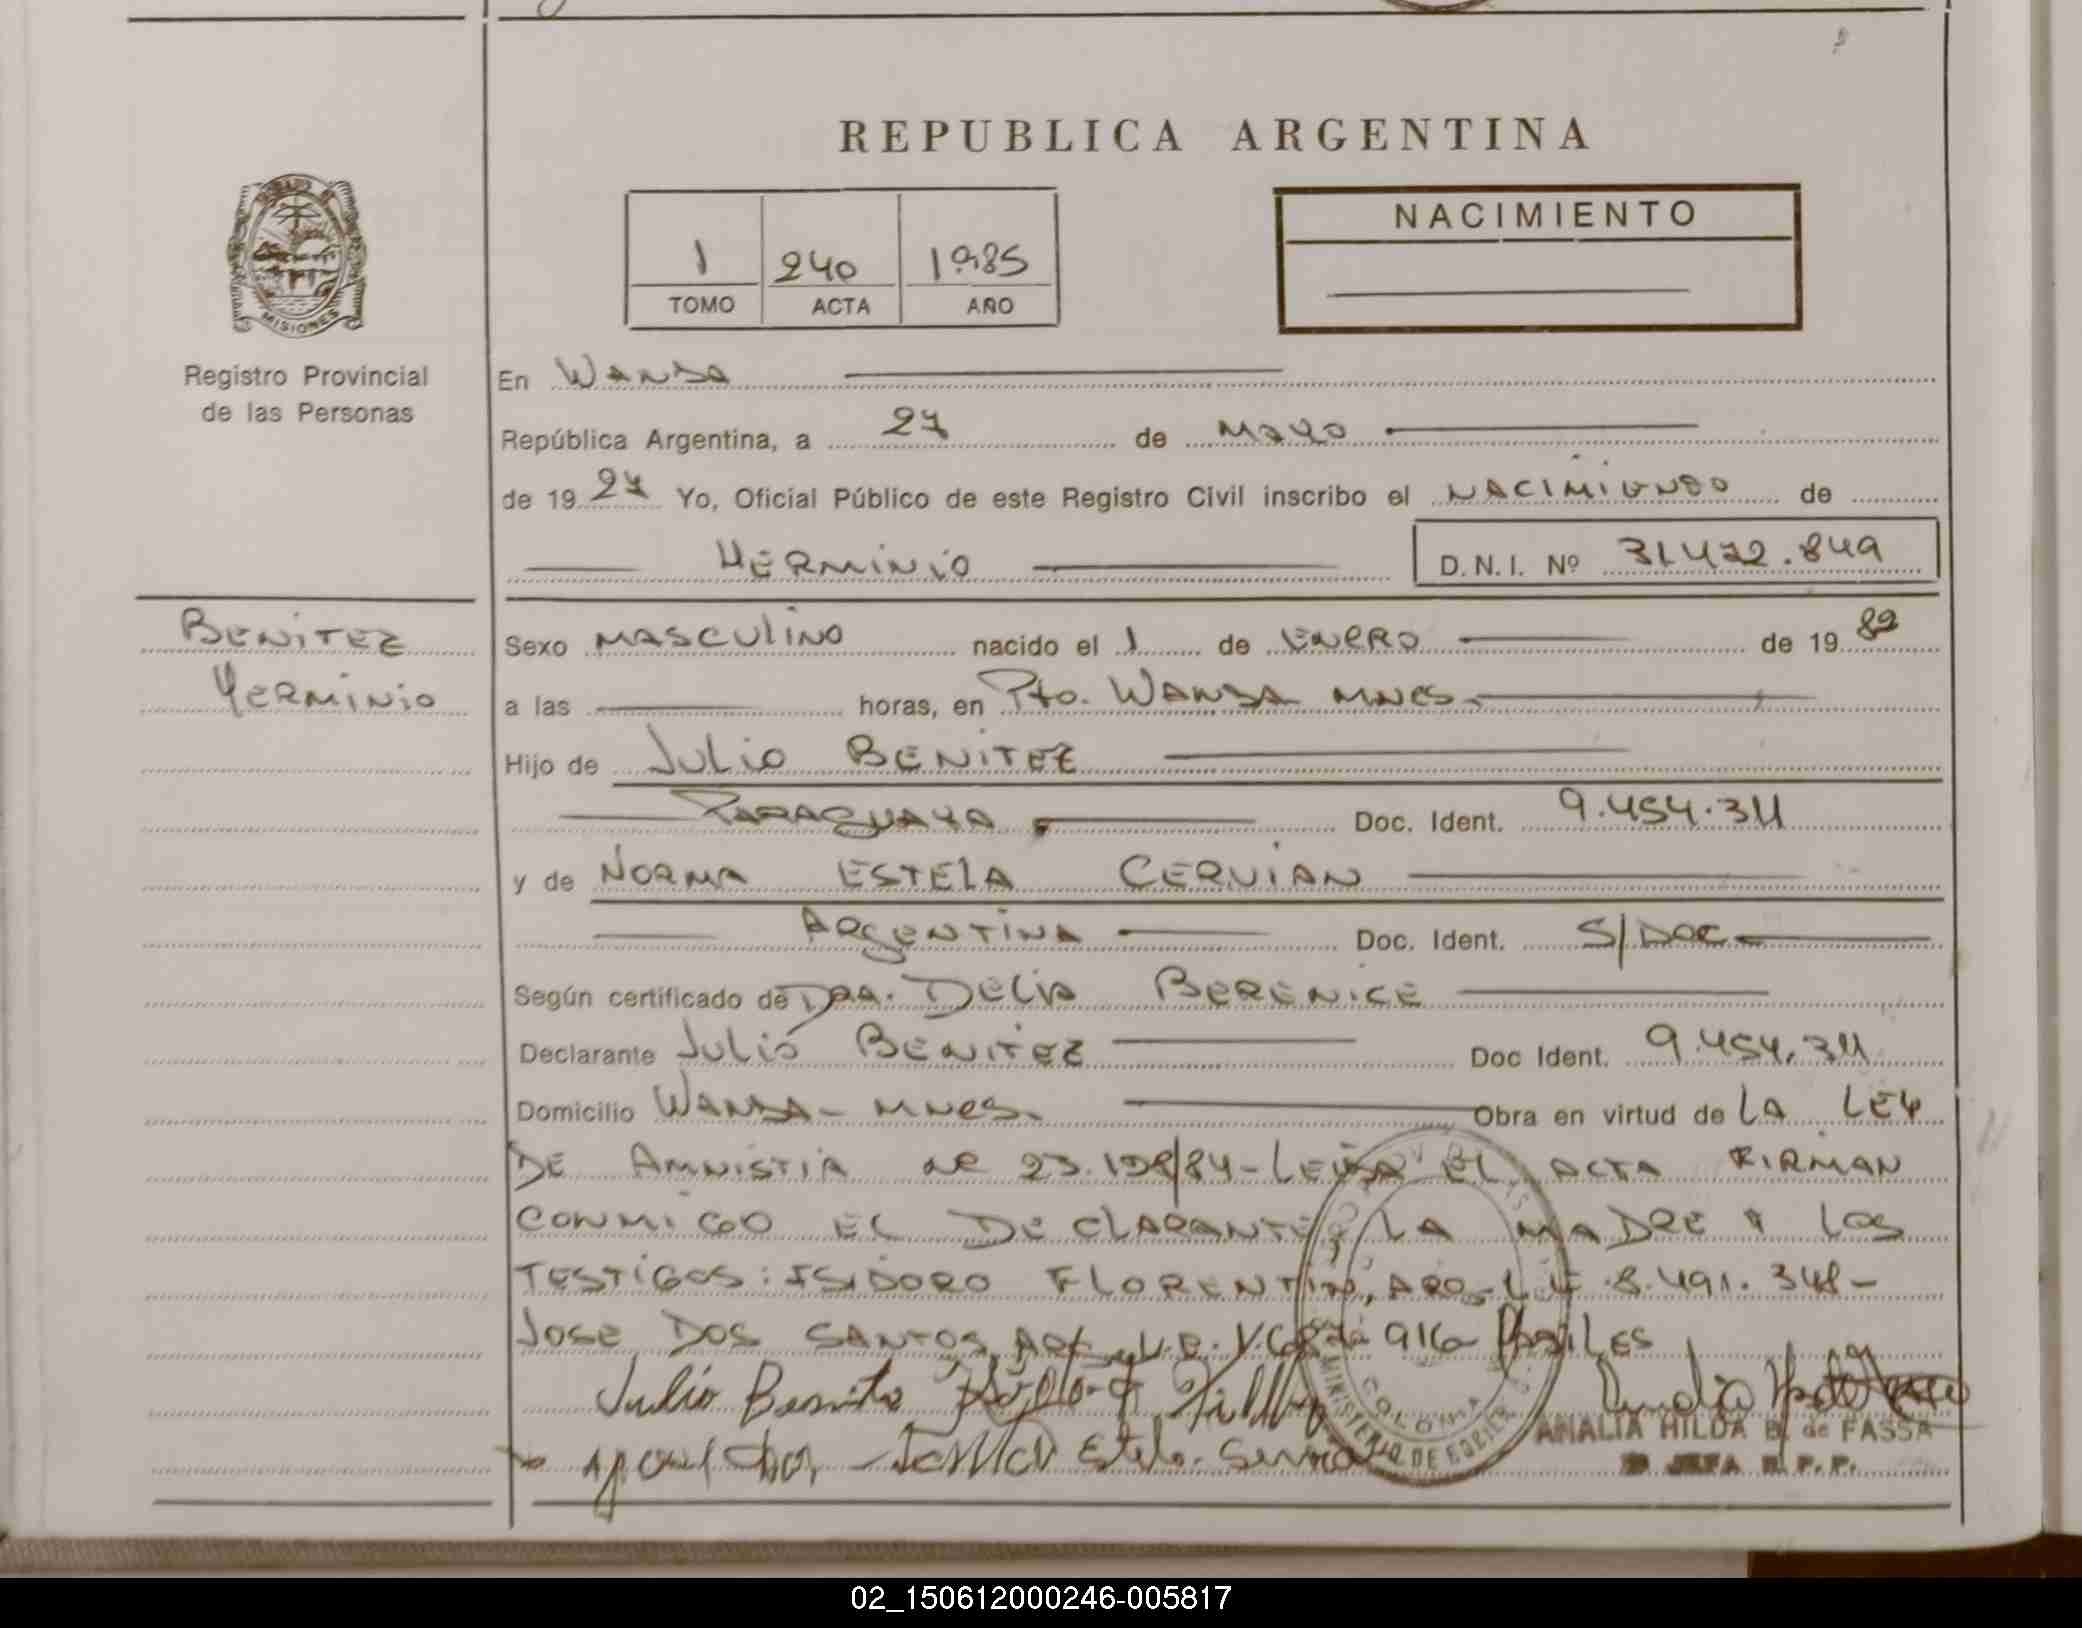 REPUBLICA ARGENTINA
1 240 1985
TOMO ACTA AÑO
NACIMIENTO
MISIONES
Registro Provincial
de las Personas
En WANDA
República Argentina, a 27 de MAYO
de 19 27 Yo, Oficial Público de este Registro Civil inscribo el NACIMIENTO de
HERMINIO
D.N.I. Nº 31.472.849
BENITEZ
HERMINIO
Sexo MASCULINO nacido el 1 de ENERO de 19 82
a las horas, en Pto. WANDA MNES-
Hijo de JULIO BENITEZ
PARAGUAYA Doc. Ident. 9.454.311
y de NORMA ESTELA CERVIAN
ARGENTINA Doc. Ident. S/DOC
Según certificado de DRA. DELIA BERENICE
Declarante JULIO BENITEZ Doc Ident. 9.454.311
Domicilio WANDA- MNES. Obra en virtud de LA LEY
DE AMNISTIA 23.128/84-LEIDA EL ACTA FIRMAN
CONMIGO EL DECLARANTE, LA MADRE Y LOS
TESTIGOS: ISIDORO FLORENTIN, ARG- L.E. 8.491.348-
JOSE DOS SANTOS, 916
Julio Benito
Estela
MINISTERIO DE
ANALIA HILDA B. de FASSA
JEFA R.P.P.
02_150612000246-005817